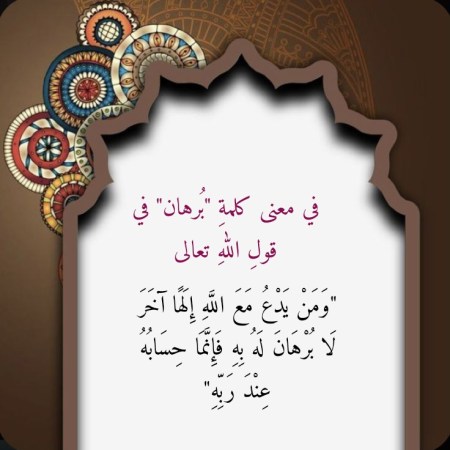 في معنى كلمةِ "بُرهان" في
قولِ اللهِ تعالى
"وَمَنْ يَدْعُ مَعَ اللَّهِ إِلَهًا آخَرَ
لَا بُرْهَانَ لَهُ بِهِ فَإِنَّمَا حِسَابُهُ
عِنْدَ رَبِّهِ"